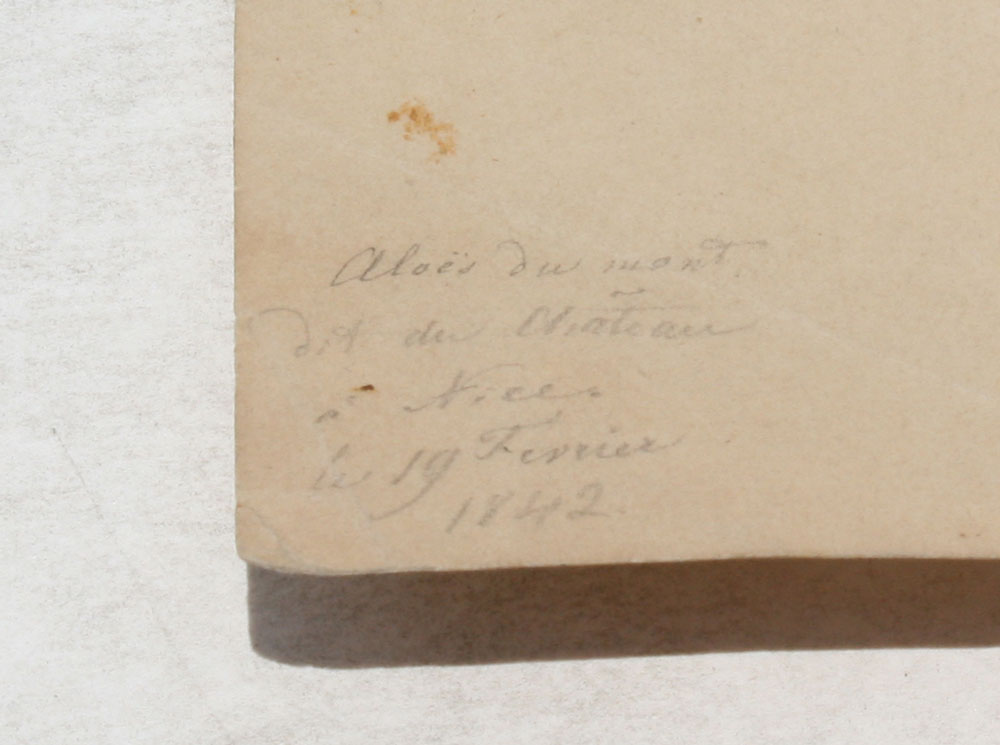 Aloës du mont
dit du Château
à Nice.
le 19 Fevrier
1842.